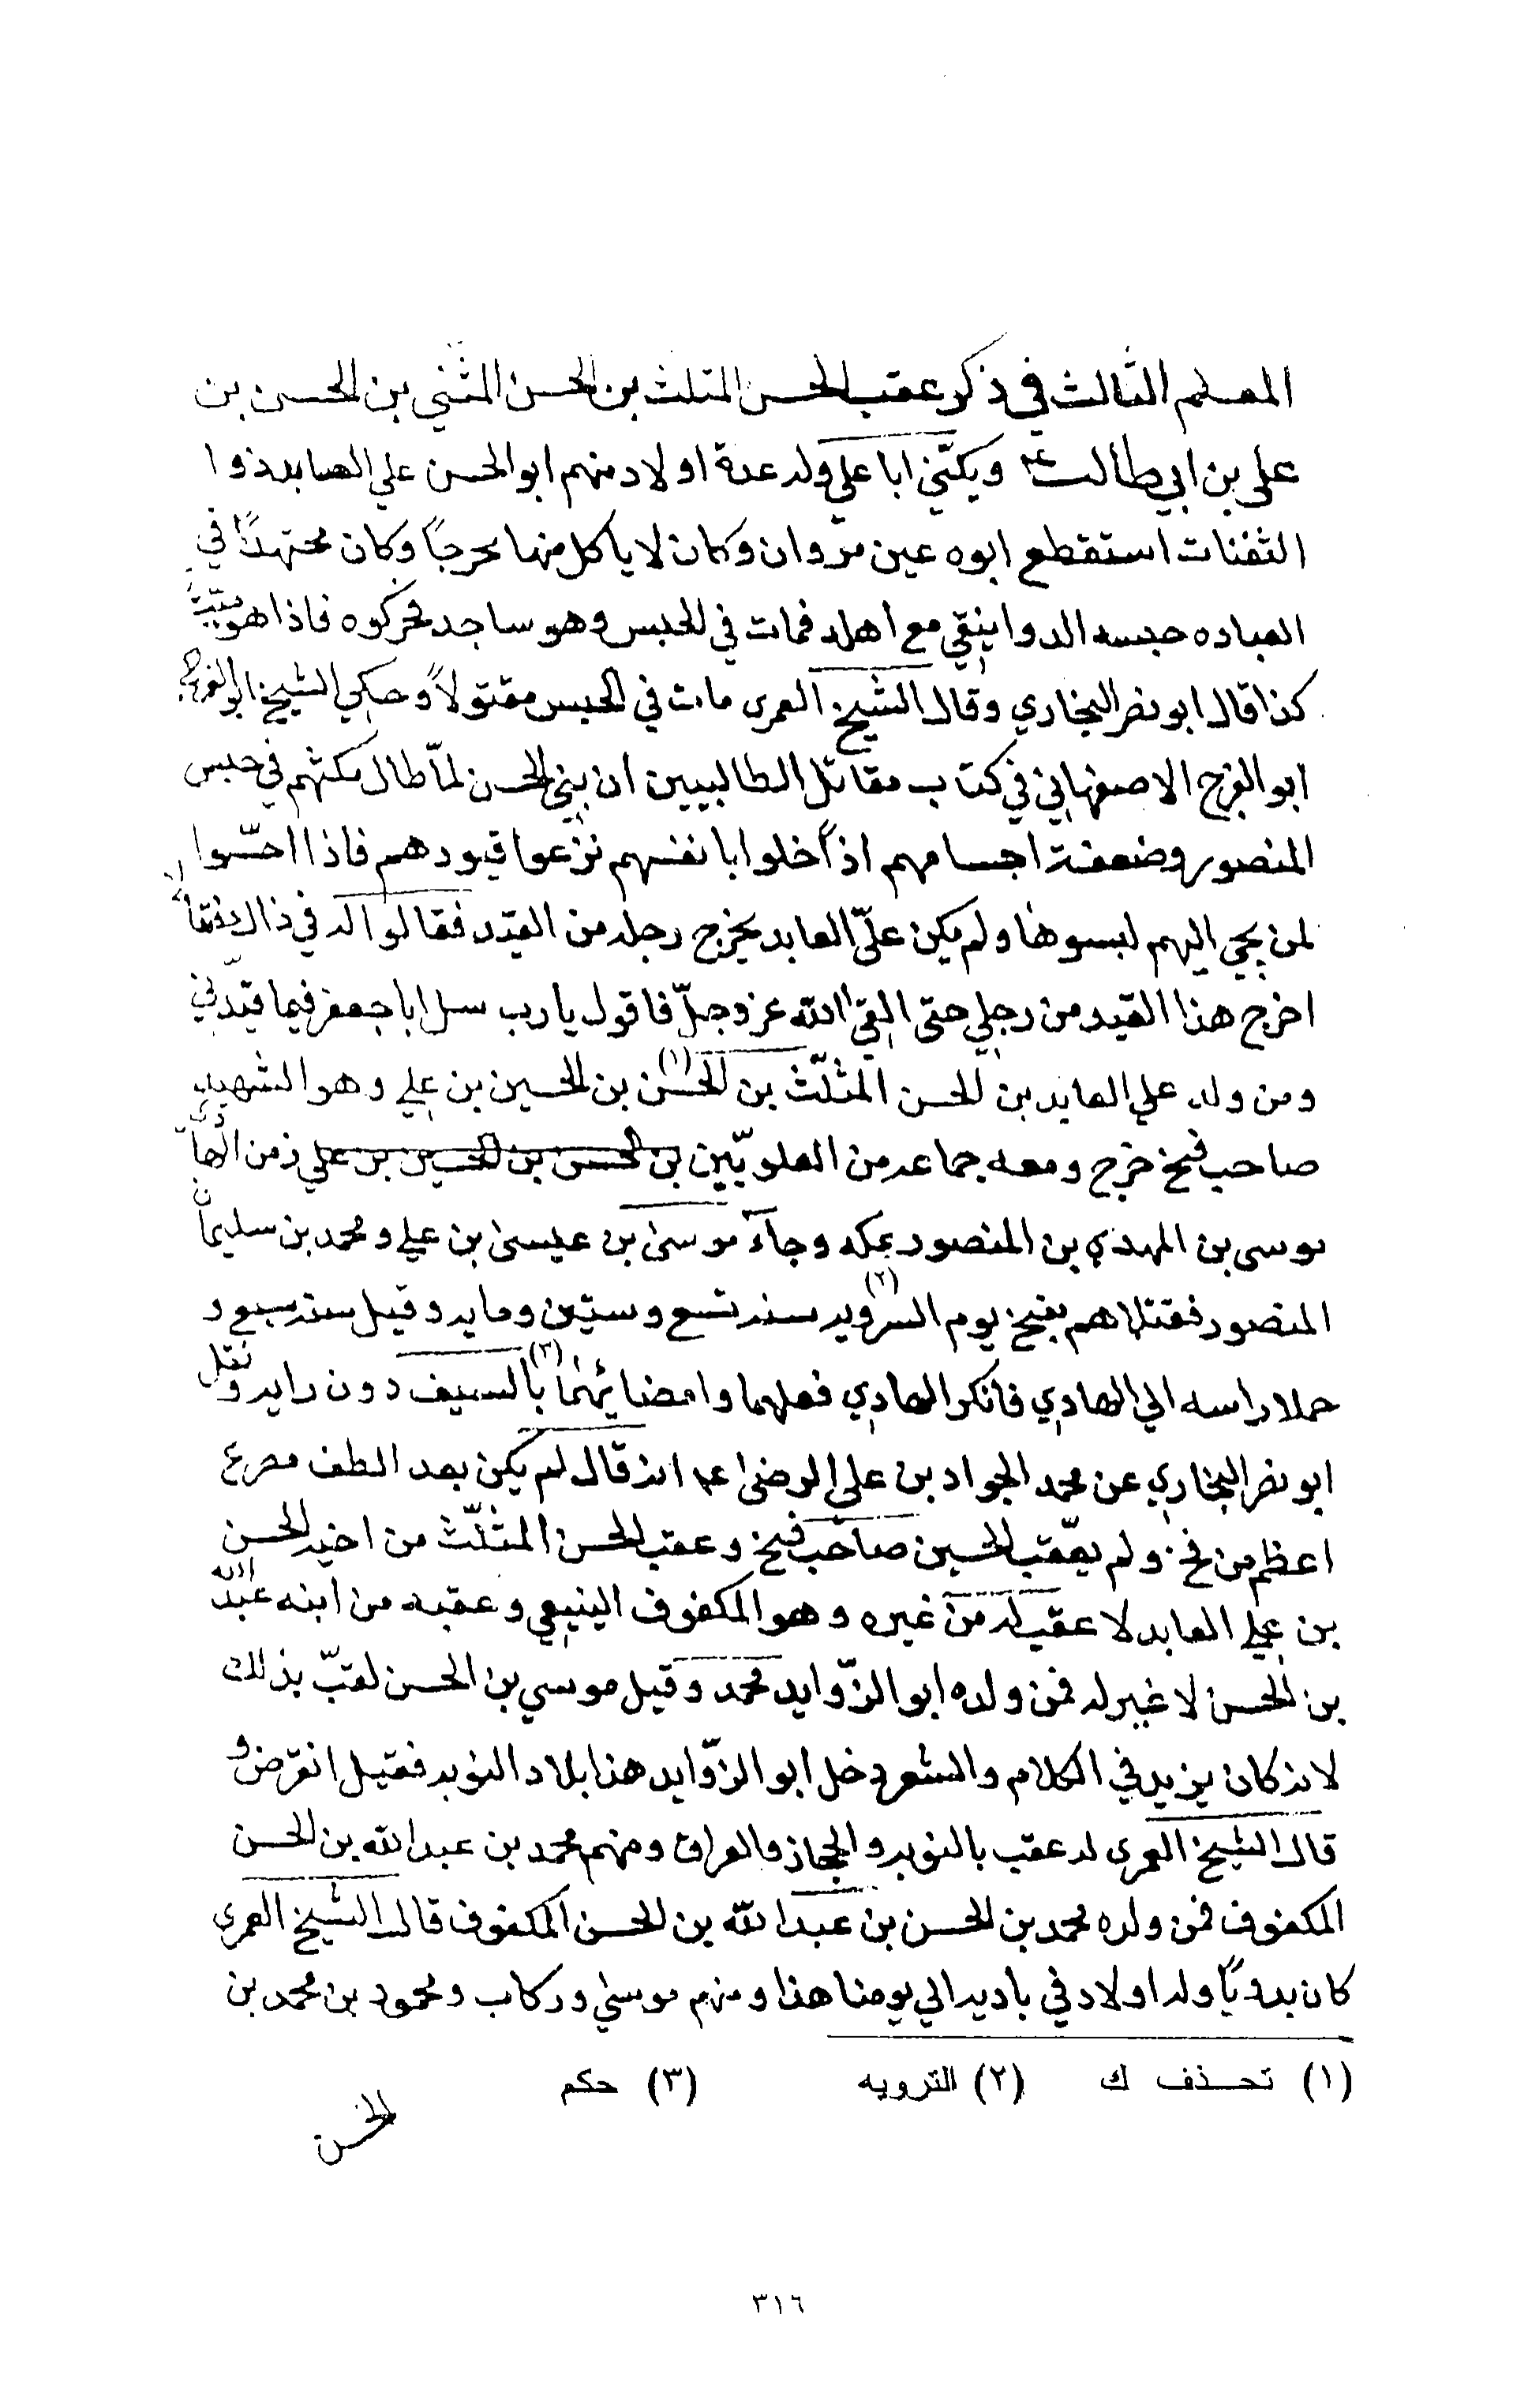 المعلم الثالث في ذكر عقب الحسن المثلث بن الحسن المثني بن الحسن بن
علي بن ابي طالب ع م ويكنّي ابا علي ولد عدة اولاد منهم ابو الحسن علي العابد ذوا
الثفنات استقطع ابوه عين مرّوان وكان لا ياكل منها تحرجاً وكان مجتهداً في
العباده حبسه الدوانيقي مع اهله فمات في الحبس وهو ساجد فحركوه فاذا هو ميّت
كذا قال ابو نصر البخاري وقال الشيخ العمري مات في الحبس مقتولاً وحكي الشيخ ابو الفرج
ابو الفرج الاصفهاني في كتاب مقاتل الطالبيين ان بني الحسن لمّا طال مكثهم في حبس
المنصور وضعفة اجسامهم اذا خلوا بانفسهم نزعوا قيودهم فاذا احسّوا
لمن يجي اليهم لبسوها ولم يكن عليّ العابد يخرج رجله من القيد فقالوا له في ذالك فقال لا
اخرج هذا القيد من رجلي حتي القي الله عز وجلّ فاقول يا رب سل ابا جعفر فيما قيّدني
ومن ولد علي العابد بن الحسن المثلّث بن الحسن (١) بن الحسين بن علي وهو الشهيد
صاحب فخ خرج ومعه جماعه من العلويّين بن الحسن بن الحسين بن علي زمن الهادي
موسى بن المهدي بن المنصور بمكه وجآء موسى بن عيسى بن علي ومحمد بن سليمان
المنصور فقتلاهم بفخ يوم السرويه (٢) سنه تسع وستين ومايه وقيل سنه سبع و
حملا راسه الي الهادي فانكر الهادي فعلهما وامضائهما (٣) بالسيف دون رايه ونقل
ابو نصر البخاري عن محمد الجواد بن علي الرضى ع م انه قال لم يكن بعد الطف مصرع
اعظم من فخ ولم يعقّب الحسين صاحب فخ وعقب الحسن المثلّث من اخيه الحسن
بن علي العابد لا عقب له من غيره وهو المكفوف الينبعي وعقبه من ابنه عبد الله
بن الحسن لا غير له فمن ولده ابو الزّوايد محمد وقيل موسي بن الحسن لقبّ بذلك
لانه كان يزيد في الكلام والشعر دخل ابو الزّوايد هذا بلاد النوبه فقيل انقرض و
قال الشيخ العمري له عقب بالنوبه والحجاز والعراق ومنهم محمد بن عبد الله بن الحسن
المكفوف فمن ولده محمد بن الحسن بن عبد الله بن الحسن المكفوف قال الشيخ العمري
كان بدويّاً وله اولاد في باديه الي يومنا هذا ومنهم موسي وركاب ومحمود بن محمد بن
(١) تحذف ك (٢) الترويه (٣) حكم
الحسن
٣١٦